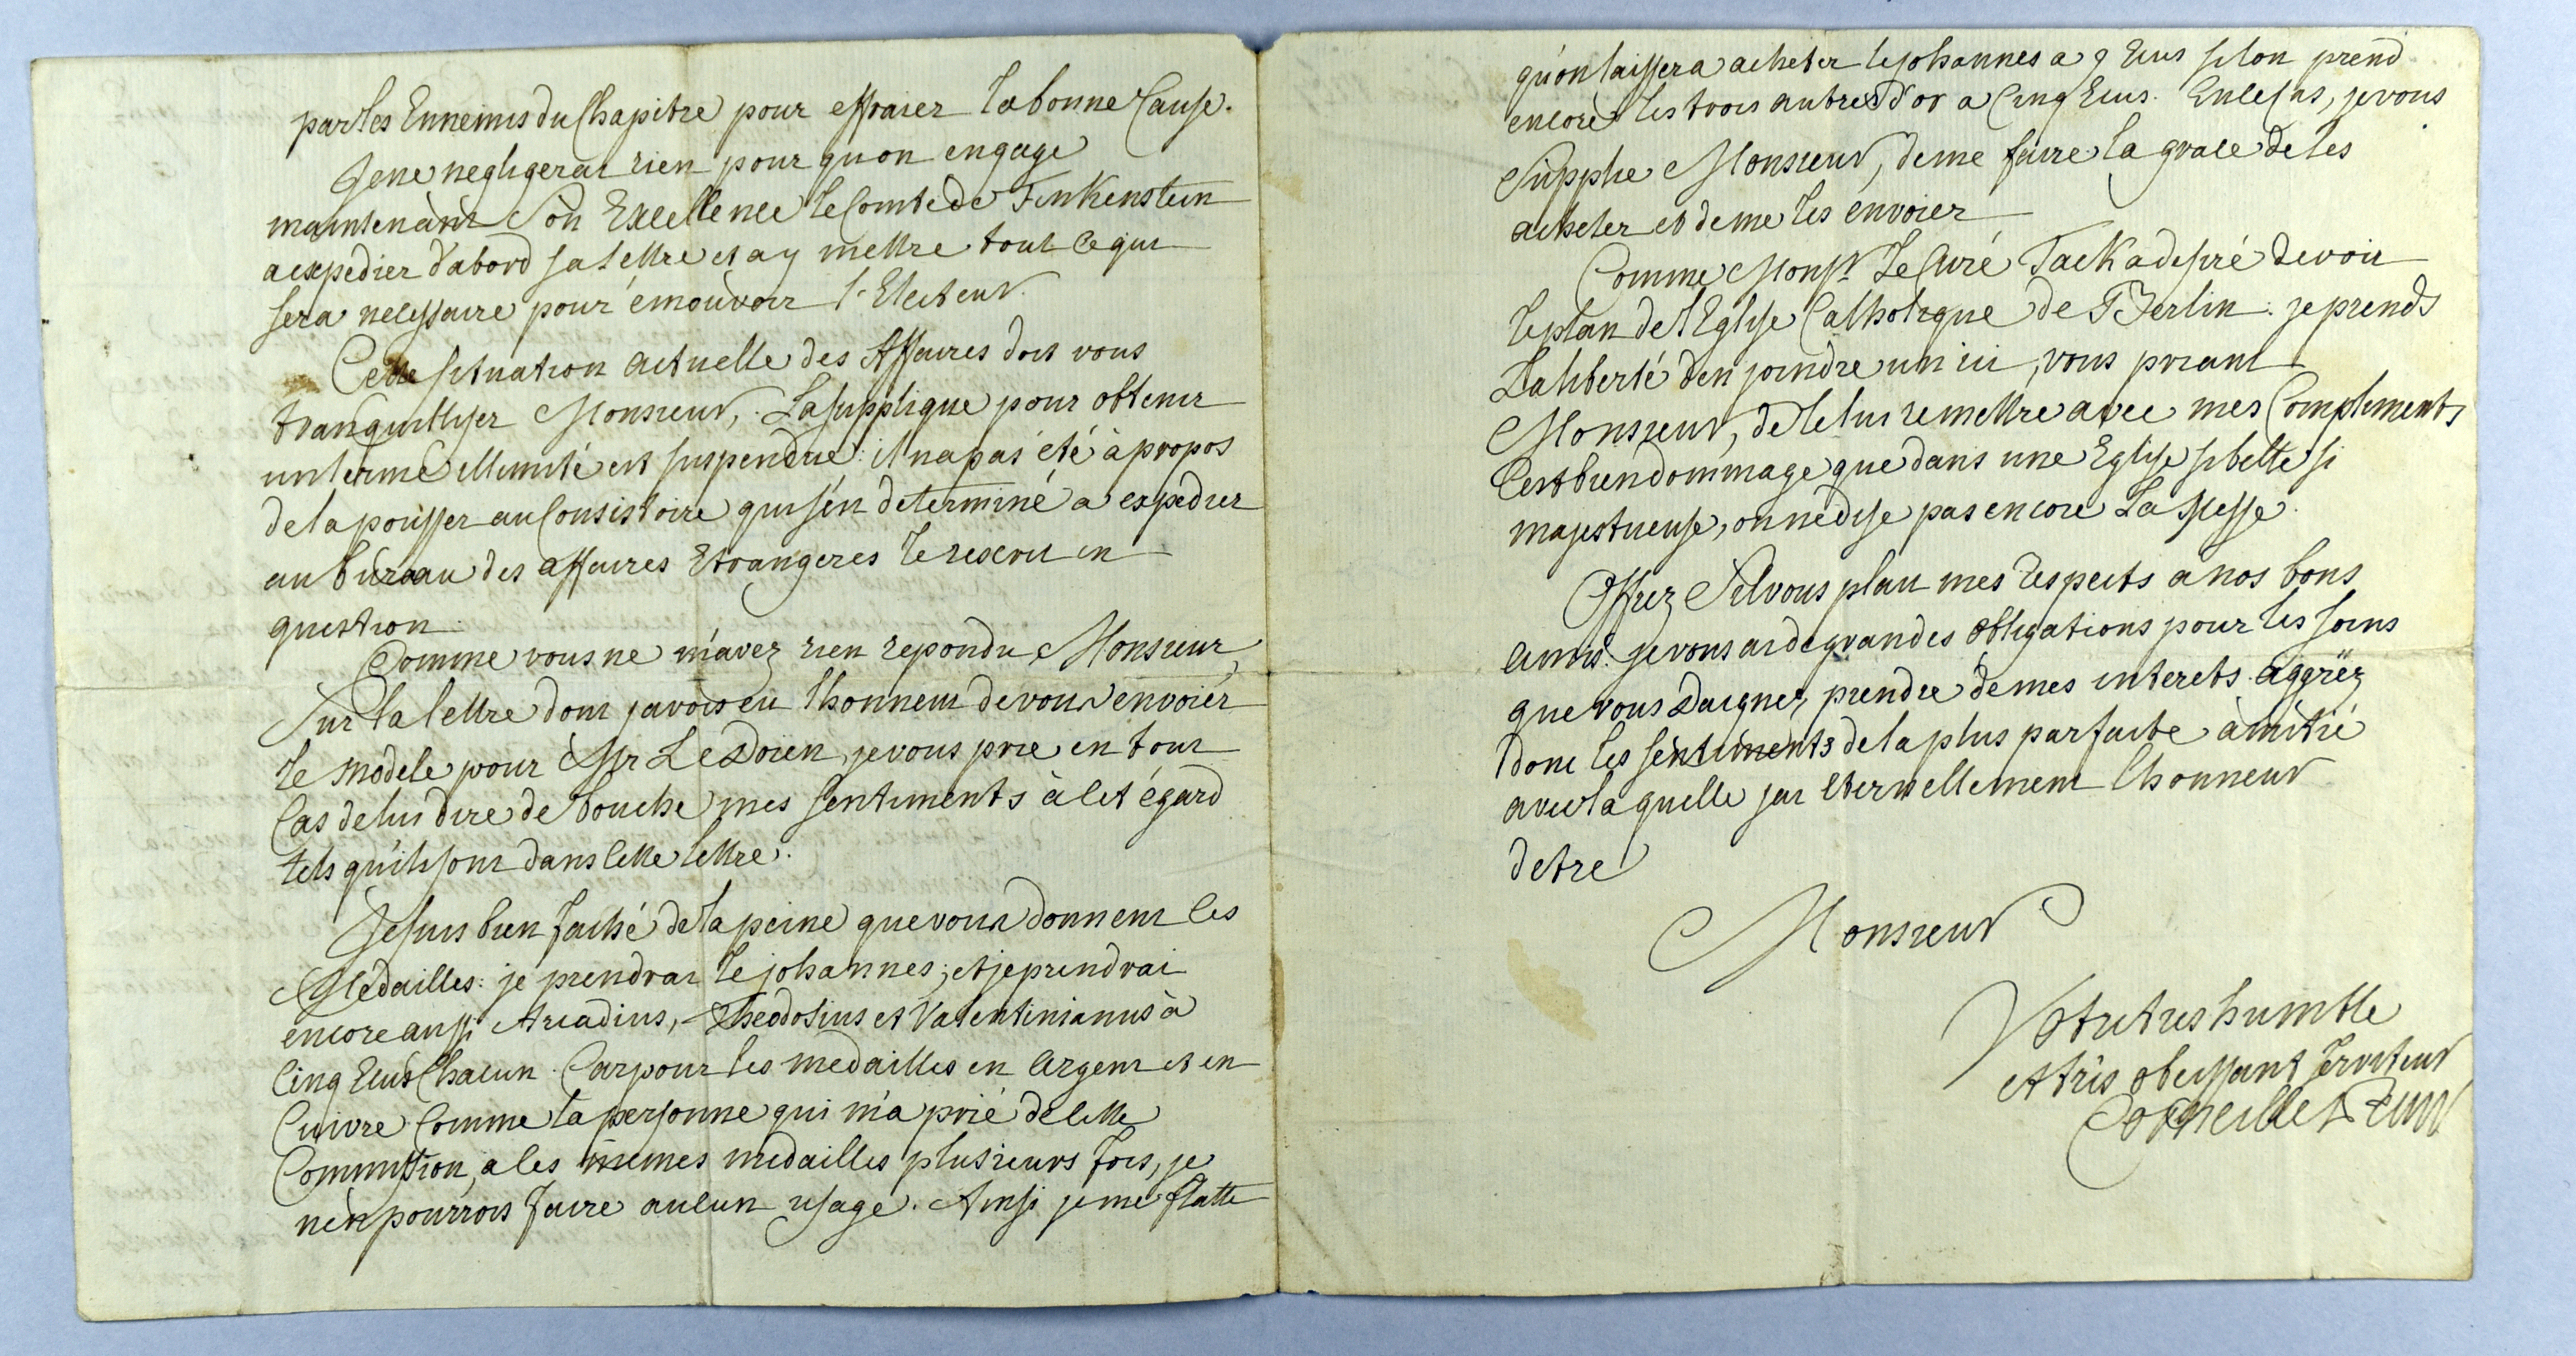 par les Ennemis du Chapitre pour effraier la bonne Cause.
Je ne negligerai rien pour qu'on engage
maintenant Son Excellence le Comte de Finkenstein
a expedier d'abord sa lettre et a y mettre tout ce qui
sera necessaire pour émouvoir l'Electeur.
Cette situation actuelle des Affaires doit vous
tranquilliser Monsieur, La supplique pour obtenir
un terme illimité est suspendue: il n'a pas été à propos
de la pousser au Consistoire qui s'en determiné a expedier
au bureau des affaires Etrangeres le rescrit en
question.
Comme vous ne m'avez rien repondu, Monsieur,
Sur la lettre dont j'avois eu l'honneur de vous envoier
le modele pour Mr Le Doien, je vous prie en tout
Cas de lui dire de bouche mes sentiments à cet égard
tels qu'ils sont dans cette lettre.
Je suis bien faché de la peine que vous donnent les
Medailles: je prendrai le johannes; et je prendrai
encore aussi Arcadius, Theodosius et Valentinianus à
Cinq Ecus Chacun. Car pour les medailles en argent et en
Cuivre Comme la personne qui m'a prié de cette
Commission, a les mêmes medailles plusieurs fois, je
n'en pourrois faire aucun usage. Ainsi je me flatte
qu'on laissera acheter le johannes a 9 Ecus si l'on prend
encore les trois autres d'or a Cinq Ecus. En ce Cas, je vous
Supplie Monsieur, de me faire la grace de les
acheter et de me les envoier
Comme Monsr. Le Curé Tack a desiré de voir
le plan de l'Eglise Catholique de Berlin: je prends
La liberté d'en joindre un ici, vous priant
Monsieur, de le lui remettre avec mes Compliments
C'est bien dommage que dans une Eglise si belle si
majestueuse, on ne dise pas encore La Messe.
Offrez S'il vous plait mes respects a nos bons
amis. je vous ai de grandes obligations pour les soins
que vous daignez prendre de mes interets. aggréez
donc les sentiments de la plus parfaite amitié
avec laquelle j'ai eternellement l'honneur
d'etre
Monsieur
Votre tres humble
et très obeissant Serviteur
Corneille